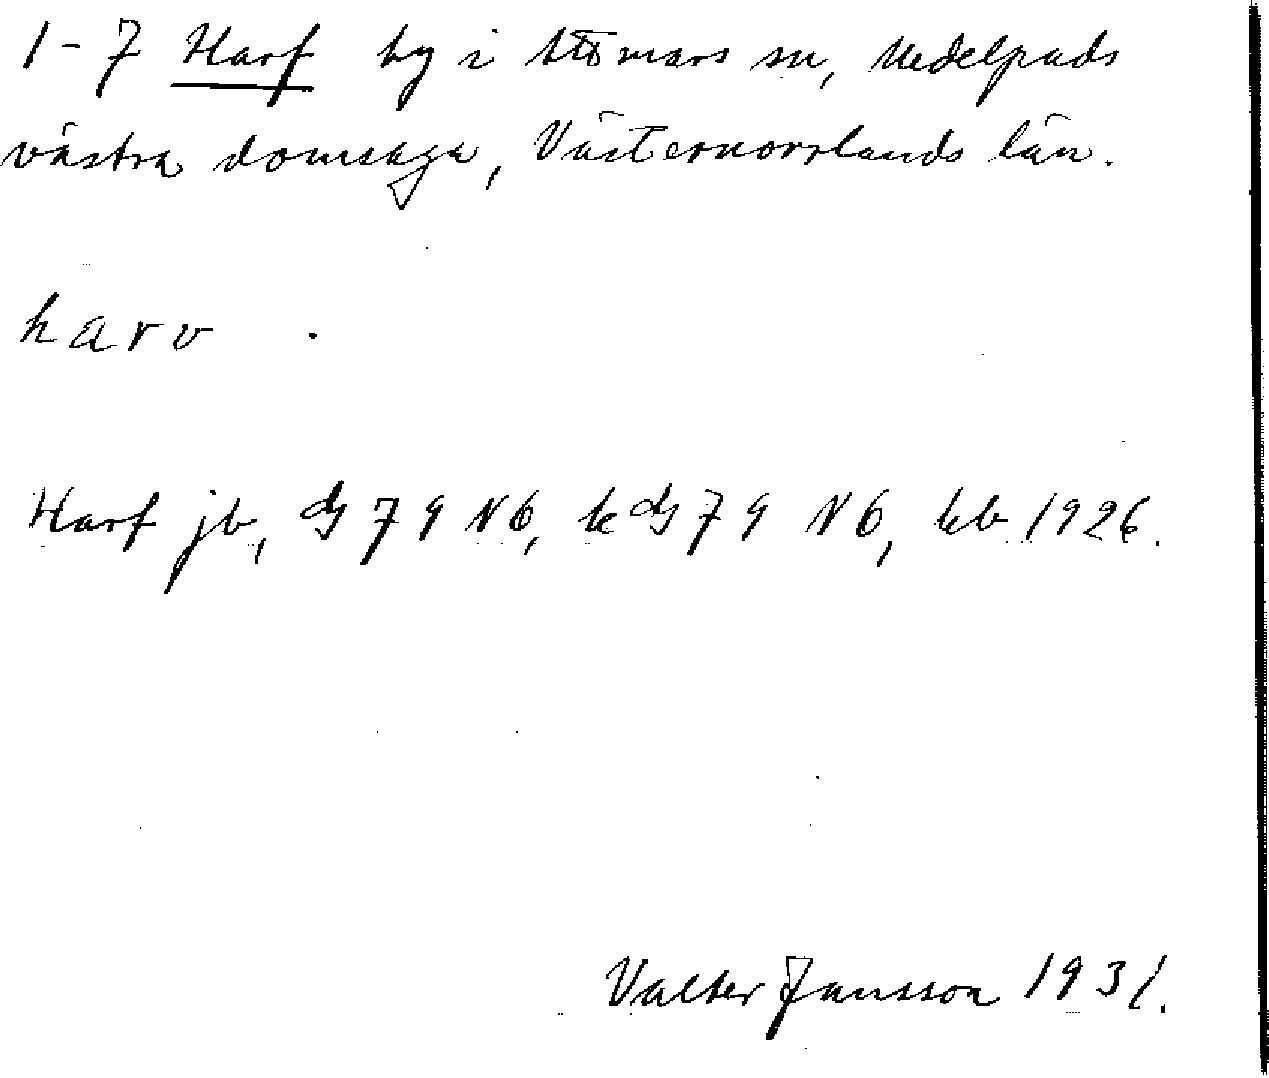 1-7 Harf by i Attmars sn, Medelpads
västra domsaga, Västernorrlands län.
harv.
Harf jb, GS 79 N6, k GS 79 N6, kb 1926.
Valter Jansson 1931.